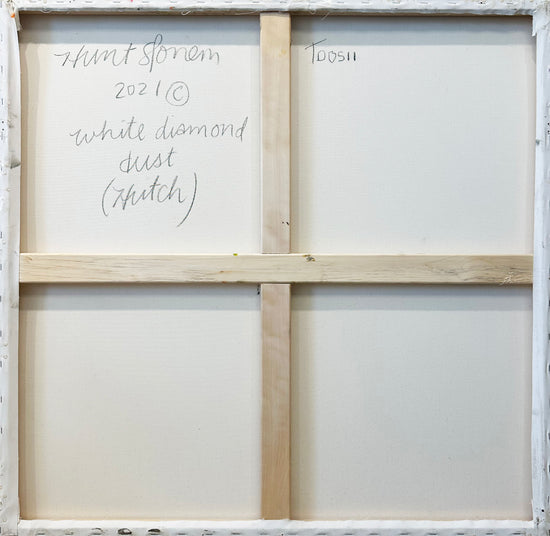 Hunt Slonem
2021 ©
white diamond
dust
(Hutch)
TD0511